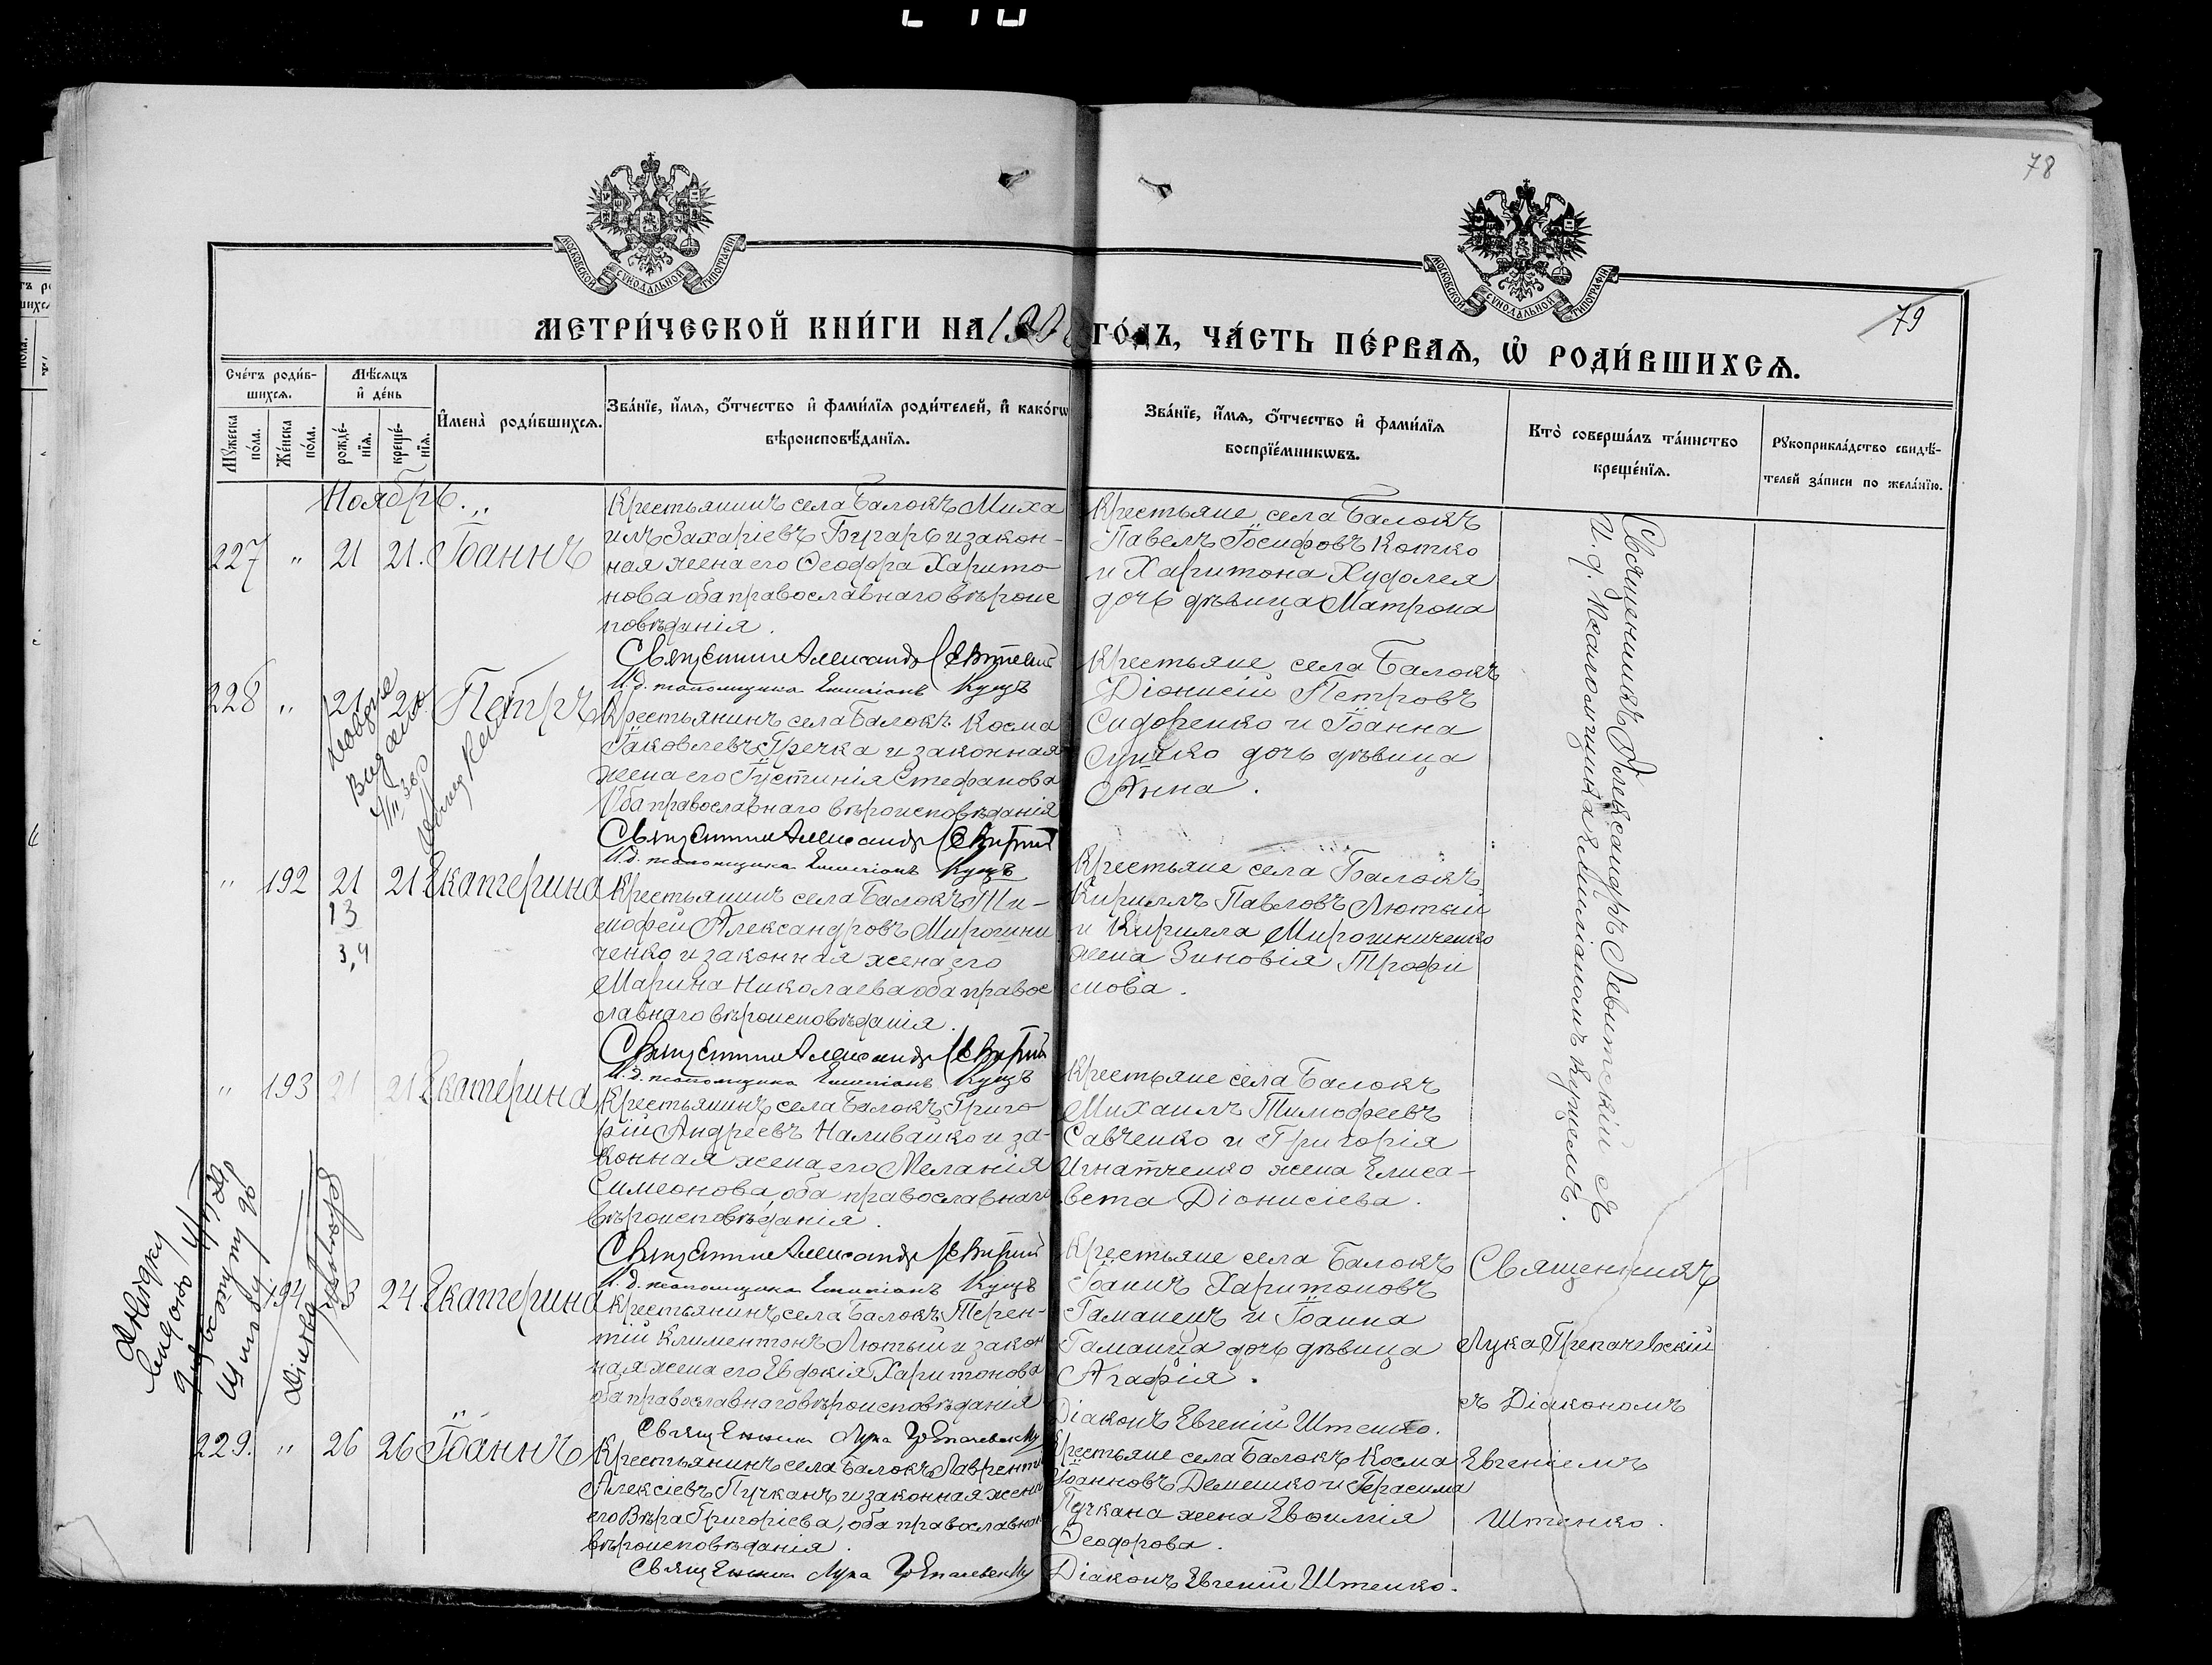 78
МОСКОВСКОЙ СѴНОДАЛЬНОЙ ТИПОГРАФІИ
МОСКОВСКОЙ СѴНОДАЛЬНОЙ ТИПОГРАФІИ
79
МЕТРИ́ЧЕСКОЙ КНИ́ГИ НА ГО́ДЪ, ЧА́СТЬ ПЕ́РВАѦ, Ѡ҆ РОДИ́ВШИХСѦ.
Сче́тъ роди́в-
шихсѧ.
Мꙋжеска по́ла.
Же́нска по́ла.
Мѣ́сѧцъ и҆ де́нь
рожде́-
нїѧ.
креще́-
нїѧ.
И҆мена̀ роди́вшихсѧ.
Зва́нїе, и҆́мѧ, ѻ҆́тчество и҆ фами́лїѧ роди́телей, и҆ како́гѡ
вѣроисповѣ́данїѧ.
Зва́нїе, и҆́мѧ, ѻ҆́тчество и҆ фами́лїѧ
воспрїе́мникѡвъ.
Кто̀ соверша́лъ та́инство
креще́нїѧ.
Рꙋкоприкла́дство свидѣ́-
телей за́писи по жела́нїю.
Ноябрь.
227 " 21 21. Іоаннъ
Крестьянинъ села Балокъ Миха
илъ Захаріевъ Бугарь и закон-
ная жена его Ѳеодора Харито
нова оба православнаго вѣроис
повѣданія.
Священникъ Александръ Левитскій
И.д. псаломщика Емиліанъ Куцъ
Крестьяне села Балокъ
Павелъ Іосифовъ Котко
и Харитона Худолея
дочь дѣвица Матрона
228 " 21 21. Петръ
Крестьянинъ села Балокъ Косма
Іаковлевъ Гречка и законная
жена его Іустинія Стефанова
Оба православнаго вѣроисповѣданія
Священникъ Александръ Левитскій
И.д. псаломщика Емиліанъ Куцъ
Крестьяне села Балокъ
Діонисій Петровъ
Сидоренко и Іоанна
дочь дѣвица
Анна.
" 192 21 21 Екатерина
13
3,4
Крестьянинъ села Балокъ Ти-
мофей Александровъ Мирошни
ченко и законная жена его
Марина Николаева оба правос
лавнаго вѣроисповѣданія.
Священникъ Александръ Левитскій
И.д. псаломщика Емиліанъ Куцъ
Крестьяне села Балокъ
Кириллъ Павловъ Лютый
и Кирилла Мирошниченко
жена Зиновія Трофи
мова.
" 193 21 21 Екатерина
Крестьянинъ села Балокъ Григо
рій Андреевъ Наливайко и за-
конная жена его Меланія
Симеонова, оба православнаго
вѣроисповѣданія.
Священникъ Александръ Левитскій
И.д. псаломщика Емиліанъ Куцъ
Крестьяне села Балокъ
Михаилъ Тимофеевъ
Савченко и Григорія
Игнатченко жена Елиса-
вета Діонисіева.
Священникъ Александръ Левитскій съ
И. д. псаломщика Емиліаномъ Куцемъ.
194 24. Екатерина
Крестьянинъ села Балокъ Терен-
тій Климентовъ Лютый и закон
ная жена его Евдокія Харитонова
оба православнаго вѣроисповѣданія
Священникъ Лука
Крестьяне села Балокъ
Іоаннъ Харитоновъ
Гаманецъ и Іоанна
Гаманца дочь дѣвица
Агафія.
Діаконъ Евгеній Штенко.
229. " 26 26 Іоаннъ
Крестьянинъ села Балокъ Лаврентій
Алексіевъ Пучканъ и законная жена
его Вѣра Григоріева, оба православнаго
вѣроисповѣданія.
Священникъ Лука
Крестьяне села Балокъ Косма
Іоанновъ Демешко и Герасима
Пучкана жена Евѳимія
Ѳеодорова.
Діаконъ Евгеній Штенко.
Священникъ
Лука
съ Діакономъ
Евгеніемъ
Штенко.